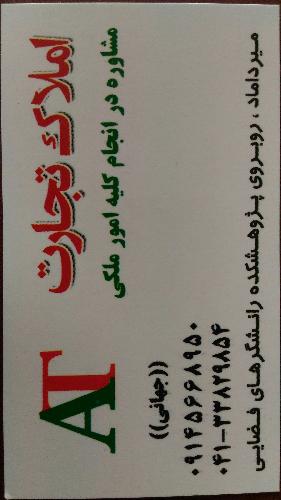 املاک تجارت
مشاوره در انجام کلیه امور ملکی
AT
((جهانی))
۰۹۱۴۵۶۶۸۹۵۰
۰۴۱-۳۳۸۲۹۸۵۴
میرداماد ، روبروی پژوهشکده رانشگرهای فضایی